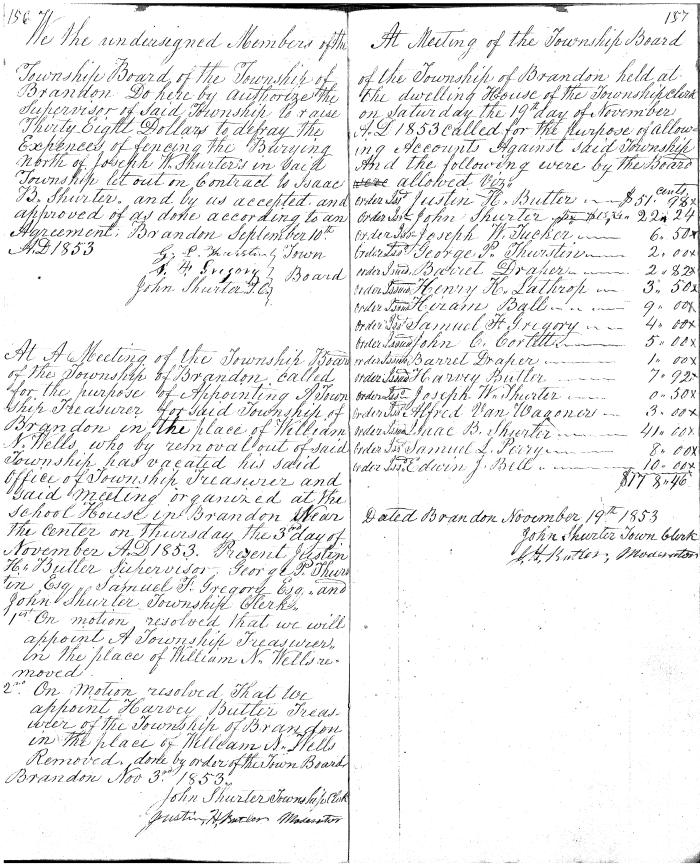 156
We the undersigned Members of the
Township Board of the Township of
Brandon Do here by authorize the
Supervisor of said Township to raise
Thirty Eight Dollars to defray the
Expences of fencing the Burying
north of Joseph W. Shurter's in Said
Township let out on Contract to Isaac
B. Shurter. and by us accepted and
approved of as done according to an
Agreement, Brandon September 10th
A.D 1853
Town
Gregory Board
John Shurter
At A Meeting of the Township Board
of the Township of Brandon called
for the purpose of Appointing A Town
Ship Treasurer for said Township of
Brandon in the place of William
N. Wells who by removal out of said
Township has vacated his said
Office of Township Treasurer and
said meeting organized at the
School House in Brandon Near
the Center on thursday the 3rd day of
November A.D 1853. Present Justin
H. Butler Supervisor, George P. Thurs
tin Esq Samuel F. Gregory Esq. and
John Shurter Township Clerk.
1st On motion resolved that we will
appoint A Township Treasurer
in the place of William N. Wells re-
moved
2nd On motion resolved That We
appoint Harvey Butler Treas-
urer of the Township of Brandon
in the place of William N. Wells
Removed. done by order of the Town Board
Brandon Nov 3rd 1853.
John Shurter Township Clerk
Justin H. Butler Moderator
157
At Meeting of the Township Board
of the Township of Brandon held at
the dwelling House of the Township Clerk
on Saturday the 19th day of November
A.D 1853 called for the purpose of allow-
ing Accounts Against said Township
And the following were by the Board
were allowed Viz. cents
order Isst Justin H. Butler $51.98x
order Isst John Shurter 22.24
order Isst Joseph W. Tucker 6.50x
order Isst George P. Thurstin 2.00x
order Issued Barret Draper 2.82x
order Issued Henry K. Lathrop 3.50x
order Issued Hiram Ball 9.00x
order Isst Samuel F. Gregory 4.00x
order Issued John C. Corlett 5.00x
order Issued Barret Draper 1.00x
order Issued Harvey Butler 7.92x
order Isst Joseph W. Shurter 0.50x
order Isst Alfred Van Wagoner 3.00x
order Issued Isaac B. Shurter 41.00x
order Isst Samuel L. Perry 8.00x
order Isst Edwin J. Bell 10.00x
$178.46
Dated Brandon November 19th 1853
John Shurter Town Clerk
J. H. Butler, Moderator